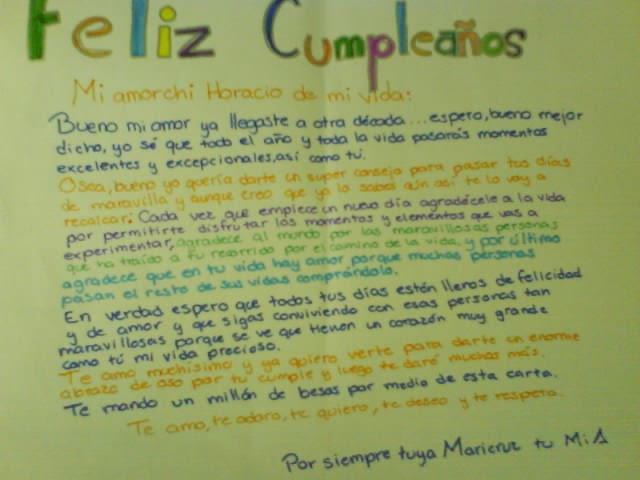 Feliz Cumpleaños
Mi amorchi Horacio de mi vida:
Bueno mi amor ya llegaste a otra década...espero, bueno mejor
dicho, yo sé que todo el año y toda la vida pasarás momentos
excelentes y excepcionales, así como tú.
Osea, bueno yo quería darte un super consejo para pasar tus días
de maravilla y aunque creo que ya lo sabes aún así te lo voy a
recalcar: Cada vez que empiece un nuevo día agradécele a la vida
por permitirte disfrutar los momentos y elementos que vas a
experimentar, agradece al mundo por las maravillosas personas
que ha traído a tu recorrido por el camino de la vida, y por último
agradece que en tu vida hay amor porque muchas personas
pasan el resto de sus vidas comprándolo.
En verdad espero que todos tus días estén llenos de felicidad
y de amor y que sigas conviviendo con esas personas tan
maravillosas porque se ve que tienen un corazón muy grande
como tú mi vida precioso.
Te amo muchisimo y ya quiero verte para darte un enorme
abrazo de oso por tu cumple y luego te daré muchos más.
Te mando un millón de besos por medio de esta carta.
Te amo, te adoro, te quiero, te deseo y te respeto.
Por siempre tuya Maricruz tu Mi